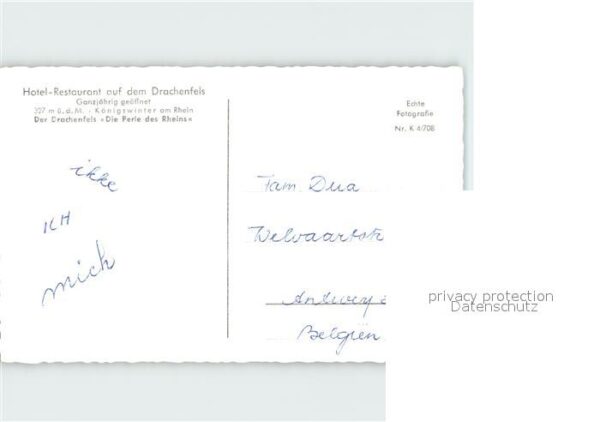 Hotel-Restaurant auf dem Drachenfels
Ganzjährig geöffnet
327 m ü. d. M. - Königswinter am Rhein
Der Drachenfels »Die Perle des Rheins«
ikke
ICH
mich
Echte
Fotografie
Nr. K 4/708
Tam
Welvaartstr
Belgiën
privacy protection
Datenschutz